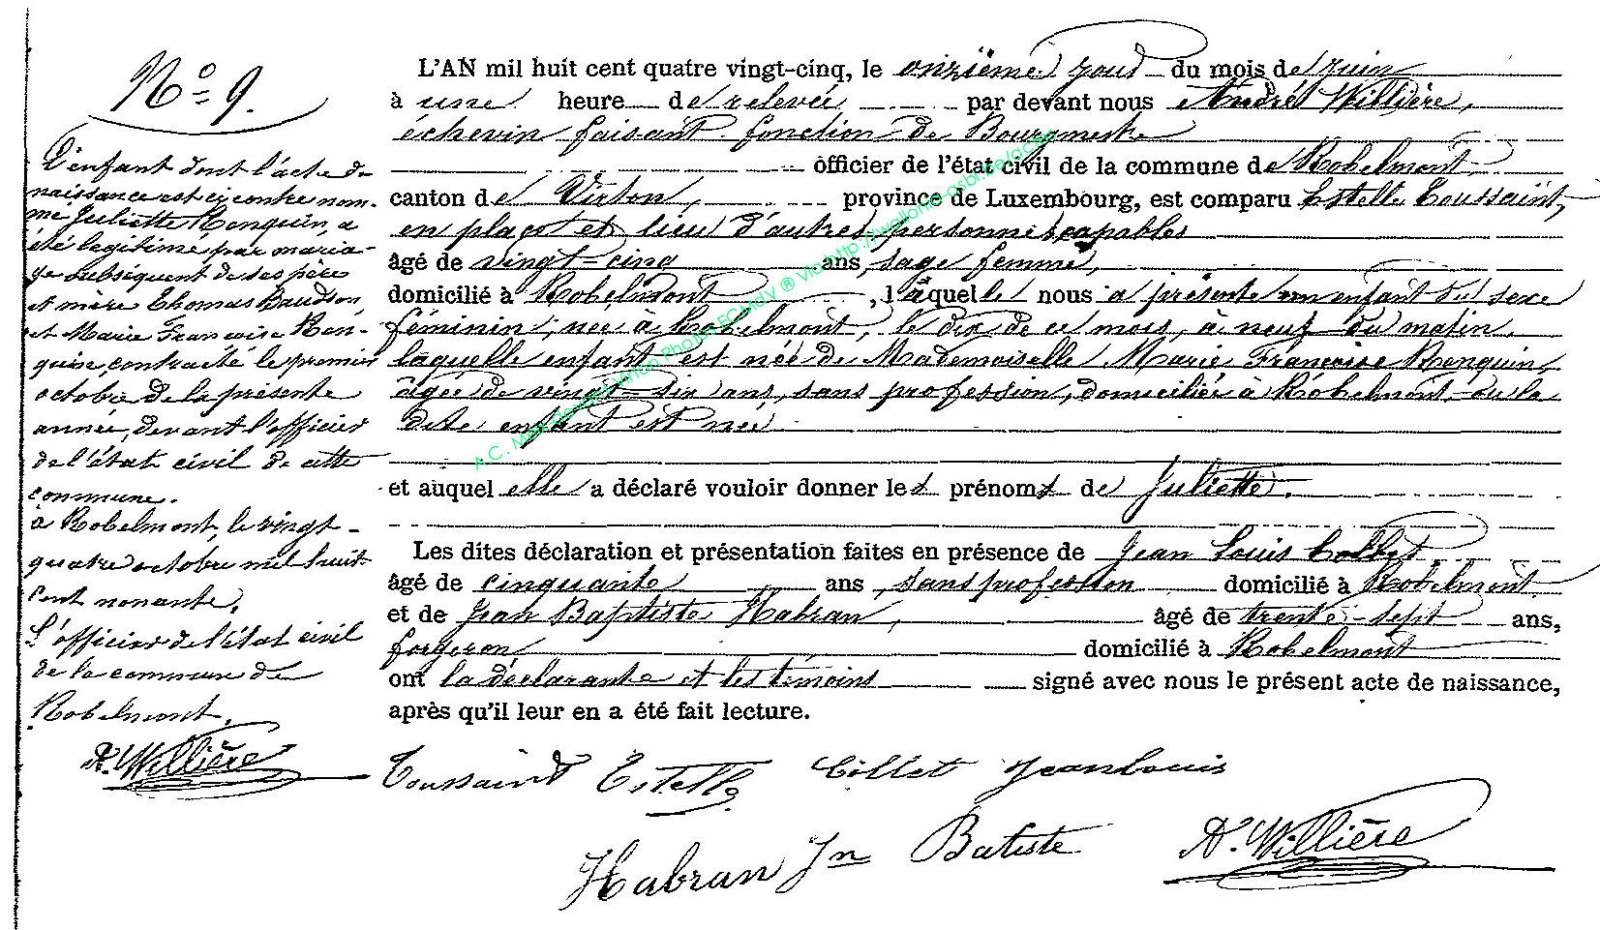 N° 9.
L'enfant dont l'acte de
naissance est ci contre nom-
mé Juliette Renquin, a
été légitimé par maria-
ge subséquent de ses père
et mère Thomas Baudson
et Marie Françoise Ren-
quin, contracté le premier
octobre de la présente
année, devant l'officier
de l'état civil de cette
commune.
à Robelmont, le vingt-
quatre octobre mil huit
cent nonante.
L'officier de l'état civil
de la commune de
Robelmont.
A. Willière
L'AN mil huit cent quatre vingt-cinq, le onzième jour du mois de juin
à une heure de relevée par devant nous André Willière,
échevin faisant fonction de Bourgmestre
officier de l'état civil de la commune de Robelmont
canton de Virton, province de Luxembourg, est comparu Estelle Toussaint,
en place et lieu d'autres personnes capables
âgé de vingt-cinq ans, sage femme,
domicilié à Robelmont, laquelle nous a présenté un enfant du sexe
féminin, née à Robelmont, le dix de ce mois, à neuf du matin,
laquelle enfant est née de Mademoiselle Marie Françoise Renquin,
âgée de vingt-six ans, sans profession, domiciliée à Robelmont, où la
dite enfant est née
et auquel elle a déclaré vouloir donner les prénoms de Juliette.
Les dites déclaration et présentation faites en présence de Jean Louis Collet
âgé de cinquante ans, sans profession domicilié à Robelmont
et de Jean Baptiste Habran, âgé de trente-sept ans,
forgeron domicilié à Robelmont
ont la déclarante et les témoins signé avec nous le présent acte de naissance,
après qu'il leur en a été fait lecture.
Toussaint Estelle Collet Jean Louis
Habran Jn Batiste A. Willière